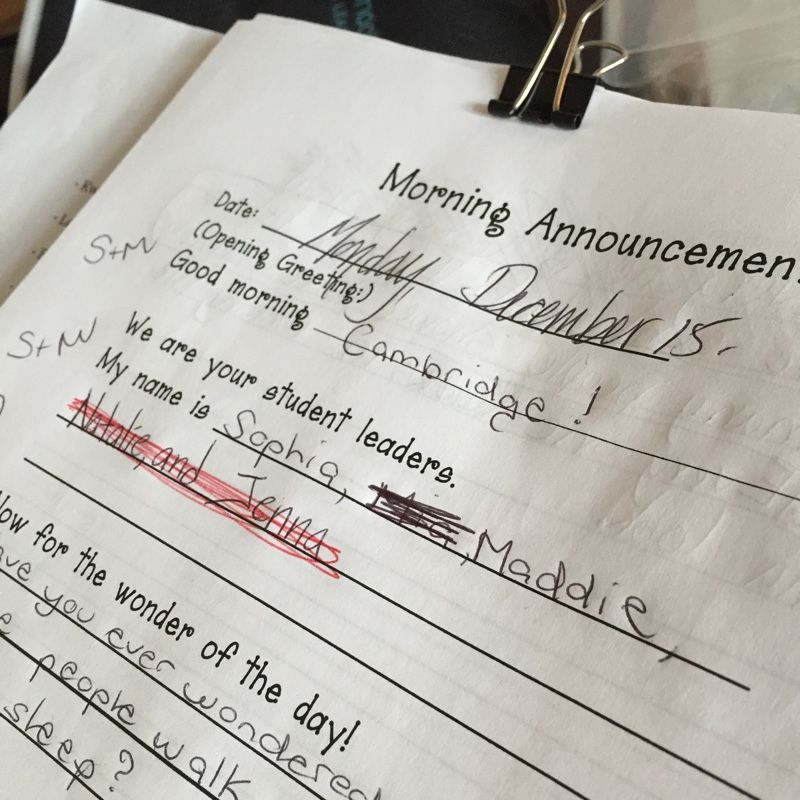 Morning Announcement
Date: Monday, December 15.
(Opening Greeting:)
S+M
Good morning Cambridge!
We are your student leaders.
S+M
My name is Sophia, Maddie,
Natalie, and Jenna
Now for the wonder of the day!
ave you ever wondered
people walk
sleep?